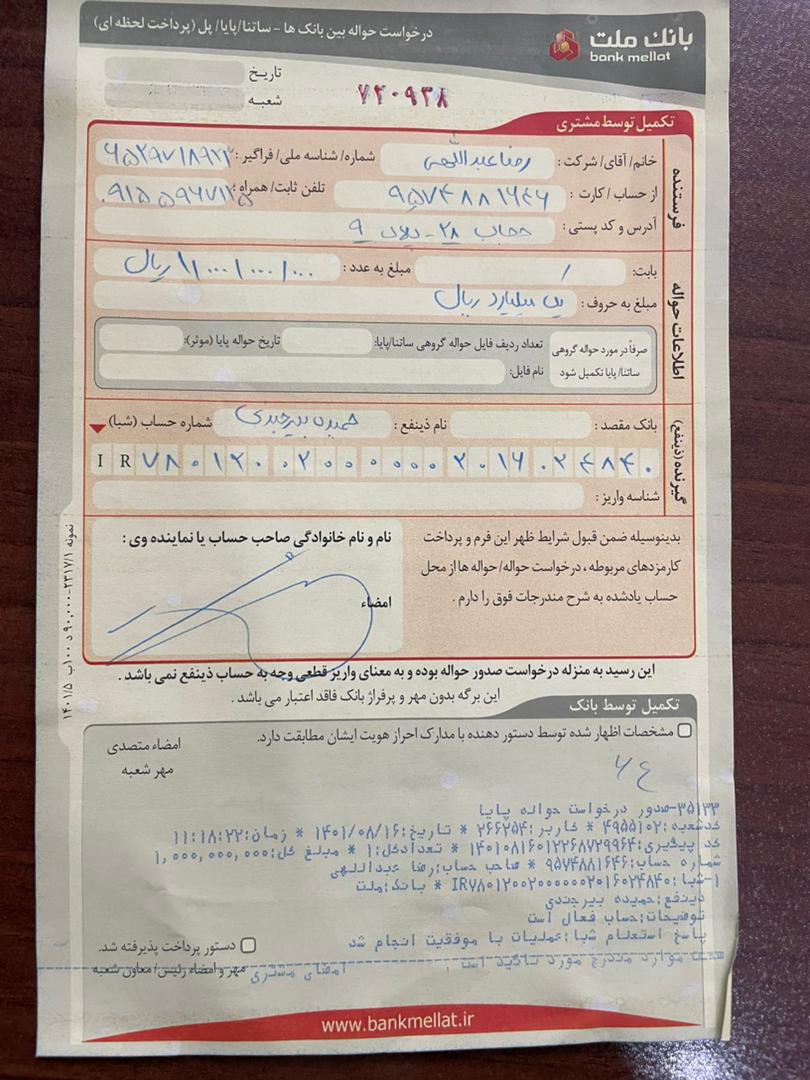 بانک ملت
bank mellat
درخواست حواله بین بانک ها - ساتنا/پایا/ پل (پرداخت لحظه ای)
تاریخ
شعبه
۷۲۰۹۳۸
تکمیل توسط مشتری
فرستنده
خانم/ آقای/ شرکت : رضا عبداللهی شماره/ شناسه ملی/ فراگیر :
از حساب / کارت : ۹۵۷۴۸۸۱۶۴۶ تلفن ثابت/ همراه :
آدرس و کد پستی : حجاب ۲۸ - پلاک ۹
اطلاعات حواله
بابت : / مبلغ به عدد : ۱/۰۰۰/۰۰۰/۰۰۰ ریال
مبلغ به حروف : یک میلیارد ریال
صرفاً در مورد حواله گروهی ساتنا/ پایا تکمیل شود
تعداد ردیف فایل حواله گروهی ساتنا/پایا: تاریخ حواله پایا (موثر):
نام فایل:
گیرنده (ذینفع)
بانک مقصد : نام ذینفع : حمیده بیرجندی شماره حساب (شبا)
IR ۷۸۰۱۲۰۰۲۰۰۰۰۰۰۲۰۱۶۰۲۴۸۴۰
شناسه واریز :
بدینوسیله ضمن قبول شرایط ظهر این فرم و پرداخت
کارمزدهای مربوطه ، درخواست حواله/ حواله ها از محل
حساب یادشده به شرح مندرجات فوق را دارم .
نام و نام خانوادگی صاحب حساب یا نماینده وی :
امضاء
نمونه ۲۳۱۷/۱-۹۰،۰۰۰ د ۱۰۰ب ۱۴۰۱/۵
این رسید به منزله درخواست صدور حواله بوده و به معنای واریز قطعی وجه به حساب ذینفع نمی باشد .
این برگه بدون مهر و پرفراژ بانک فاقد اعتبار می باشد .
تکمیل توسط بانک
مشخصات اظهار شده توسط دستور دهنده با مدارک احراز هویت ایشان مطابقت دارد.
امضاء متصدی
مهر شعبه
۳۵۱۳۳-صدور درخواست حواله پایا
کدشعبه:۴۹۵۵۱۰۲ * کاربر:۲۶۶۲۵۴ * تاریخ:۱۴۰۱/۰۸/۱۶ * زمان:۱۱:۱۸:۲۲
کد پیگیری:۱۴۰۱۰۸۱۶۰۱۲۲۶۸۷۲۹۹۶۴ * تعدادکل:۱ * مبلغ کل:۱,۰۰۰,۰۰۰,۰۰۰
شماره حساب:۹۵۷۴۸۸۱۶۴۶ * صاحب حساب:رضا عبداللهی
۱-شبا:IR۷۸۰۱۲۰۰۲۰۰۰۰۰۰۲۰۱۶۰۲۴۸۴۰ * بانک:ملت
ذینفع:حمیده بیرجندی
توضیحات:حساب فعال است
پاسخ استعلام شبا:عملیات با موفقیت انجام شد
صحت موارد مندرج مورد تائید است امضای مشتری
دستور پرداخت پذیرفته شد.
مهر و امضاء رئیس/ معاون شعبه
www.bankmellat.ir